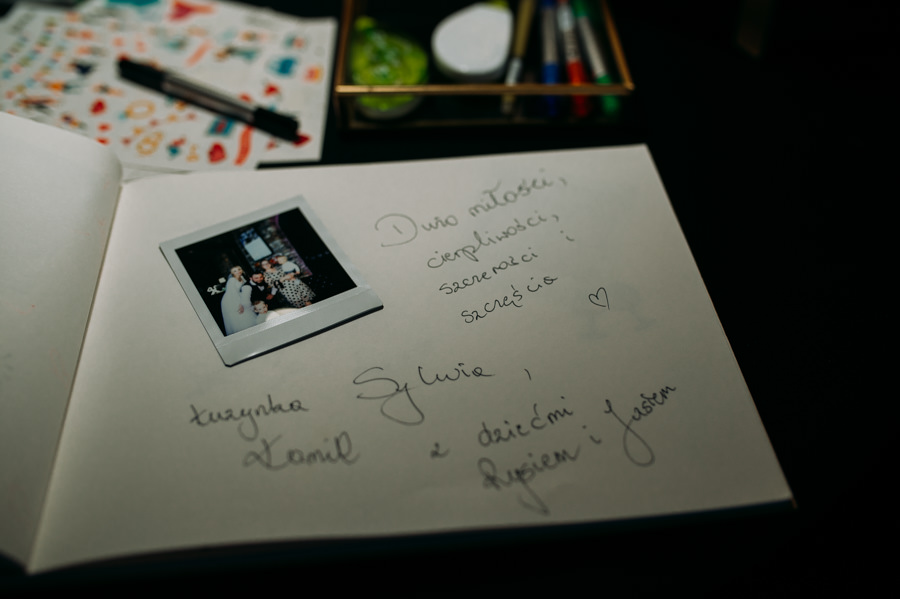 Dużo miłości,
cierpliwości,
szczerości i
szczęścia ♡
Łuzynka Sylwia,
Kamil z dziećmi
Rysiem i Jasiem